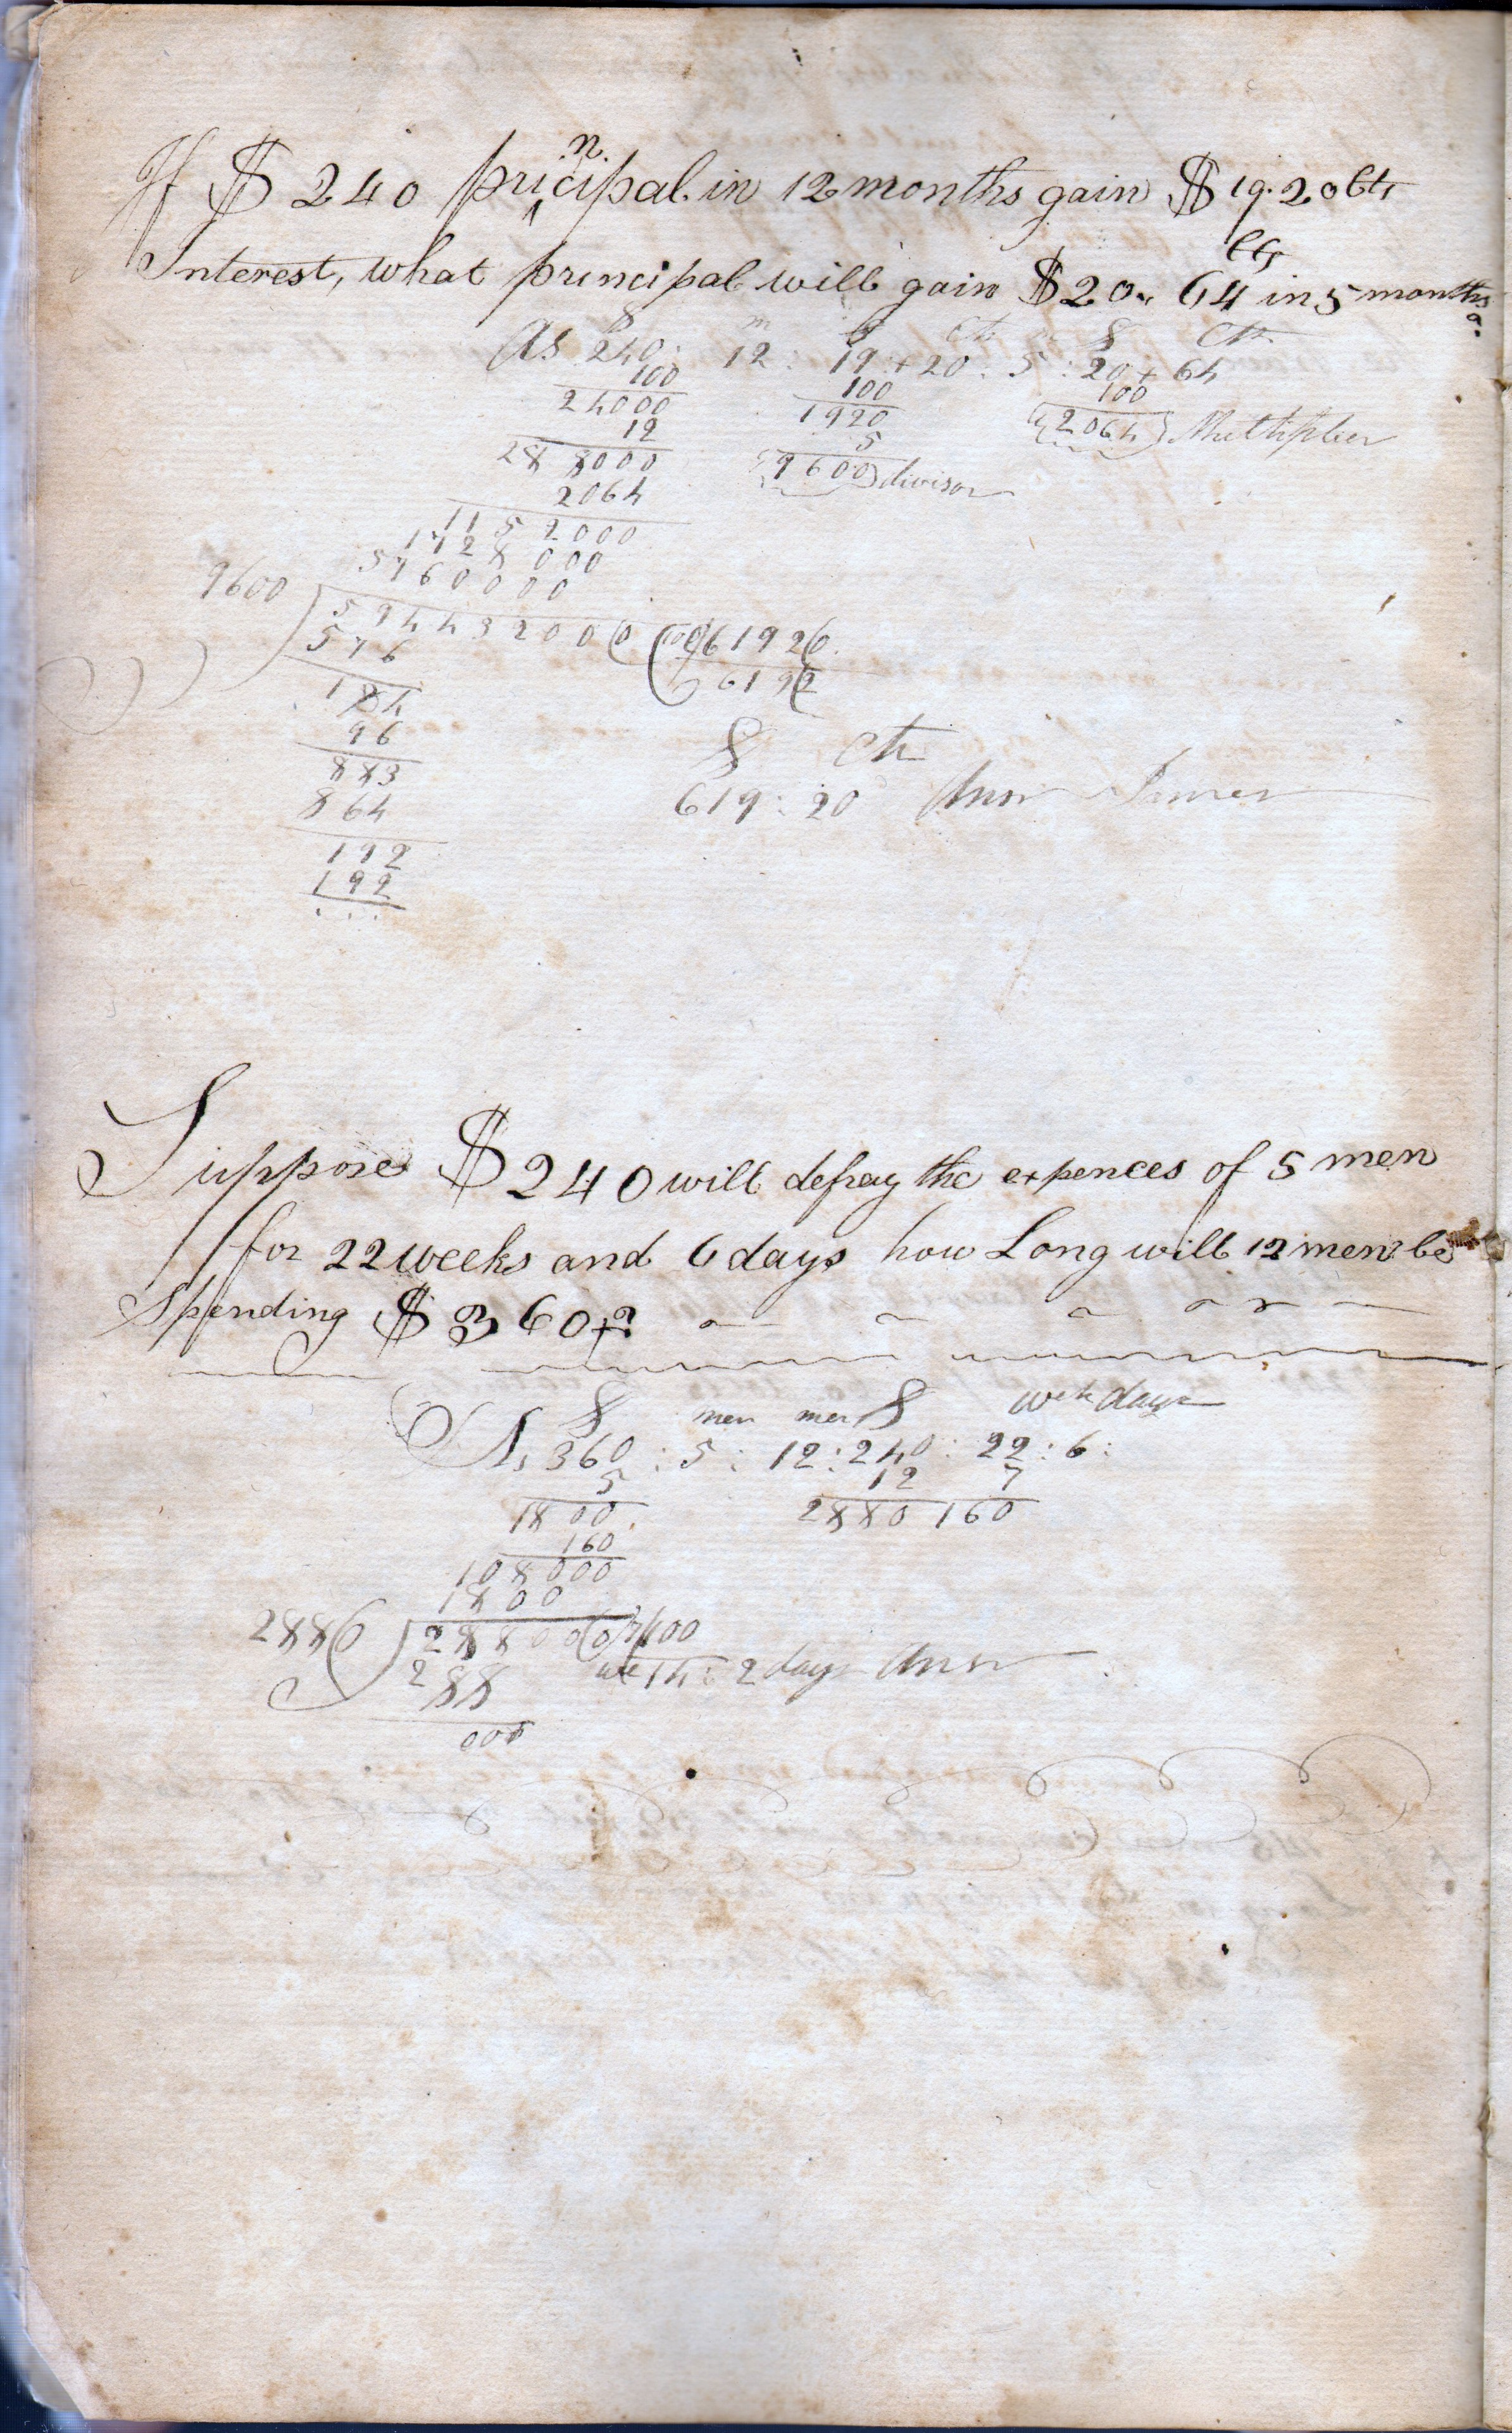 If $ 240 pricipal in 12 months gain $ 19.20 Cts
n
Interest, what principal will gain $ 20. 64 in 5 months?
Cts
$ m $ Cts m $ Cts
As 240 : 12 : 19 + 20 : 5 : 20 + 64
100 100 100
24000 1920 2064 Multiplier
12 5
288000 9600 divisor
2064
1152000
1728000
5760000
9600 ) 594432000 ( 61920
576 6192
184
96
883
864
192
192
. . .
$ Cts
619 : 20 Answ
Suppose $ 240 will defray the expences of 5 men
for 22 weeks and 6 days how Long will 12 men be
Spending $ 360?
$ men men $ wek days
As 360 : 5 : 12 : 240 : 22 : 6 :
5 12 7
1800 2880 160
160
108000
1800
2880 ) 288000 ( 7)100
288 we 14 : 2 days Answ
000